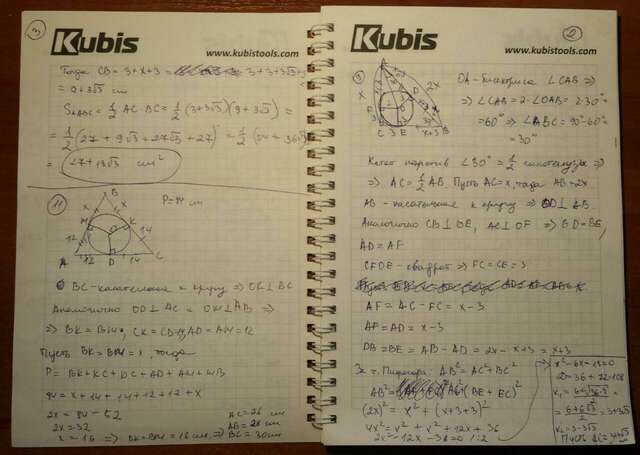 3
Kubis
www.kubistools.com
Тогда CB = 3+x+3 = 3+3+3√3+
= 9+3√3 cm
S△ABC = 1/2 AC·BC = 1/2 (3+3√3)(9+3√3) =
= 1/2 (27 + 9√3 + 27√3 + 27) = 1/2 (54 + 36√3)
= 27+18√3 cm²
11
P=84 cm
B
x x
M K
12 14
A 12 D 14 C
BC - касательная к кругу ⇒ OK ⊥ BC
Аналогично OD ⊥ AC = OM ⊥ AB ⇒
⇒ BK = BM; CK = CD = 14, AD = AM = 12
Пусть BK = BM = x, тогда
P = BK + KC + DC + AD + AM + MB
84 = x + 14 + 14 + 12 + 12 + x
2x = 84 - 52
2x = 32
x = 16 ⇒ BK = BM = 16 cm ⇒
AC = 26 cm
AB = 28 cm
BC = 30 cm
2
Kubis
www.kubistools.com
9
OA - биссектриса ∠CAB ⇒
⇒ ∠CAB = 2·∠OAB = 2·30° =
= 60° ⇒ ∠ABC = 90°-60° =
= 30°
Катет напротив ∠30° = 1/2 гипотенузы ⇒
⇒ AC = 1/2 AB. Пусть AC = x, тогда AB = 2x
AB - касательная к кругу ⇒ OD ⊥ AB
Аналогично CB ⊥ OE, AC ⊥ OF ⇒ BD = BE,
AD = AF
CFOE - квадрат ⇒ FC = CE = 3
AF = AC - FC = x - 3
AF = AD = x - 3
DB = BE = AB - AD = 2x - x + 3 = x + 3
За т. Пифагора: AB² = AC² + BC²
AB² = AC² + (BE + EC)²
(2x)² = x² + (x+3+3)²
4x² = x² + x² + 12x + 36
2x² - 12x - 36 = 0 |:2
x² - 6x - 18 = 0
D = 36 + 72 = 108
x₁ = 6+√36·3 / 2
= 6+6√3 / 2 = 3+3√3
x₂ = 3-3√3
Пусть AC = 3+3√3 cm